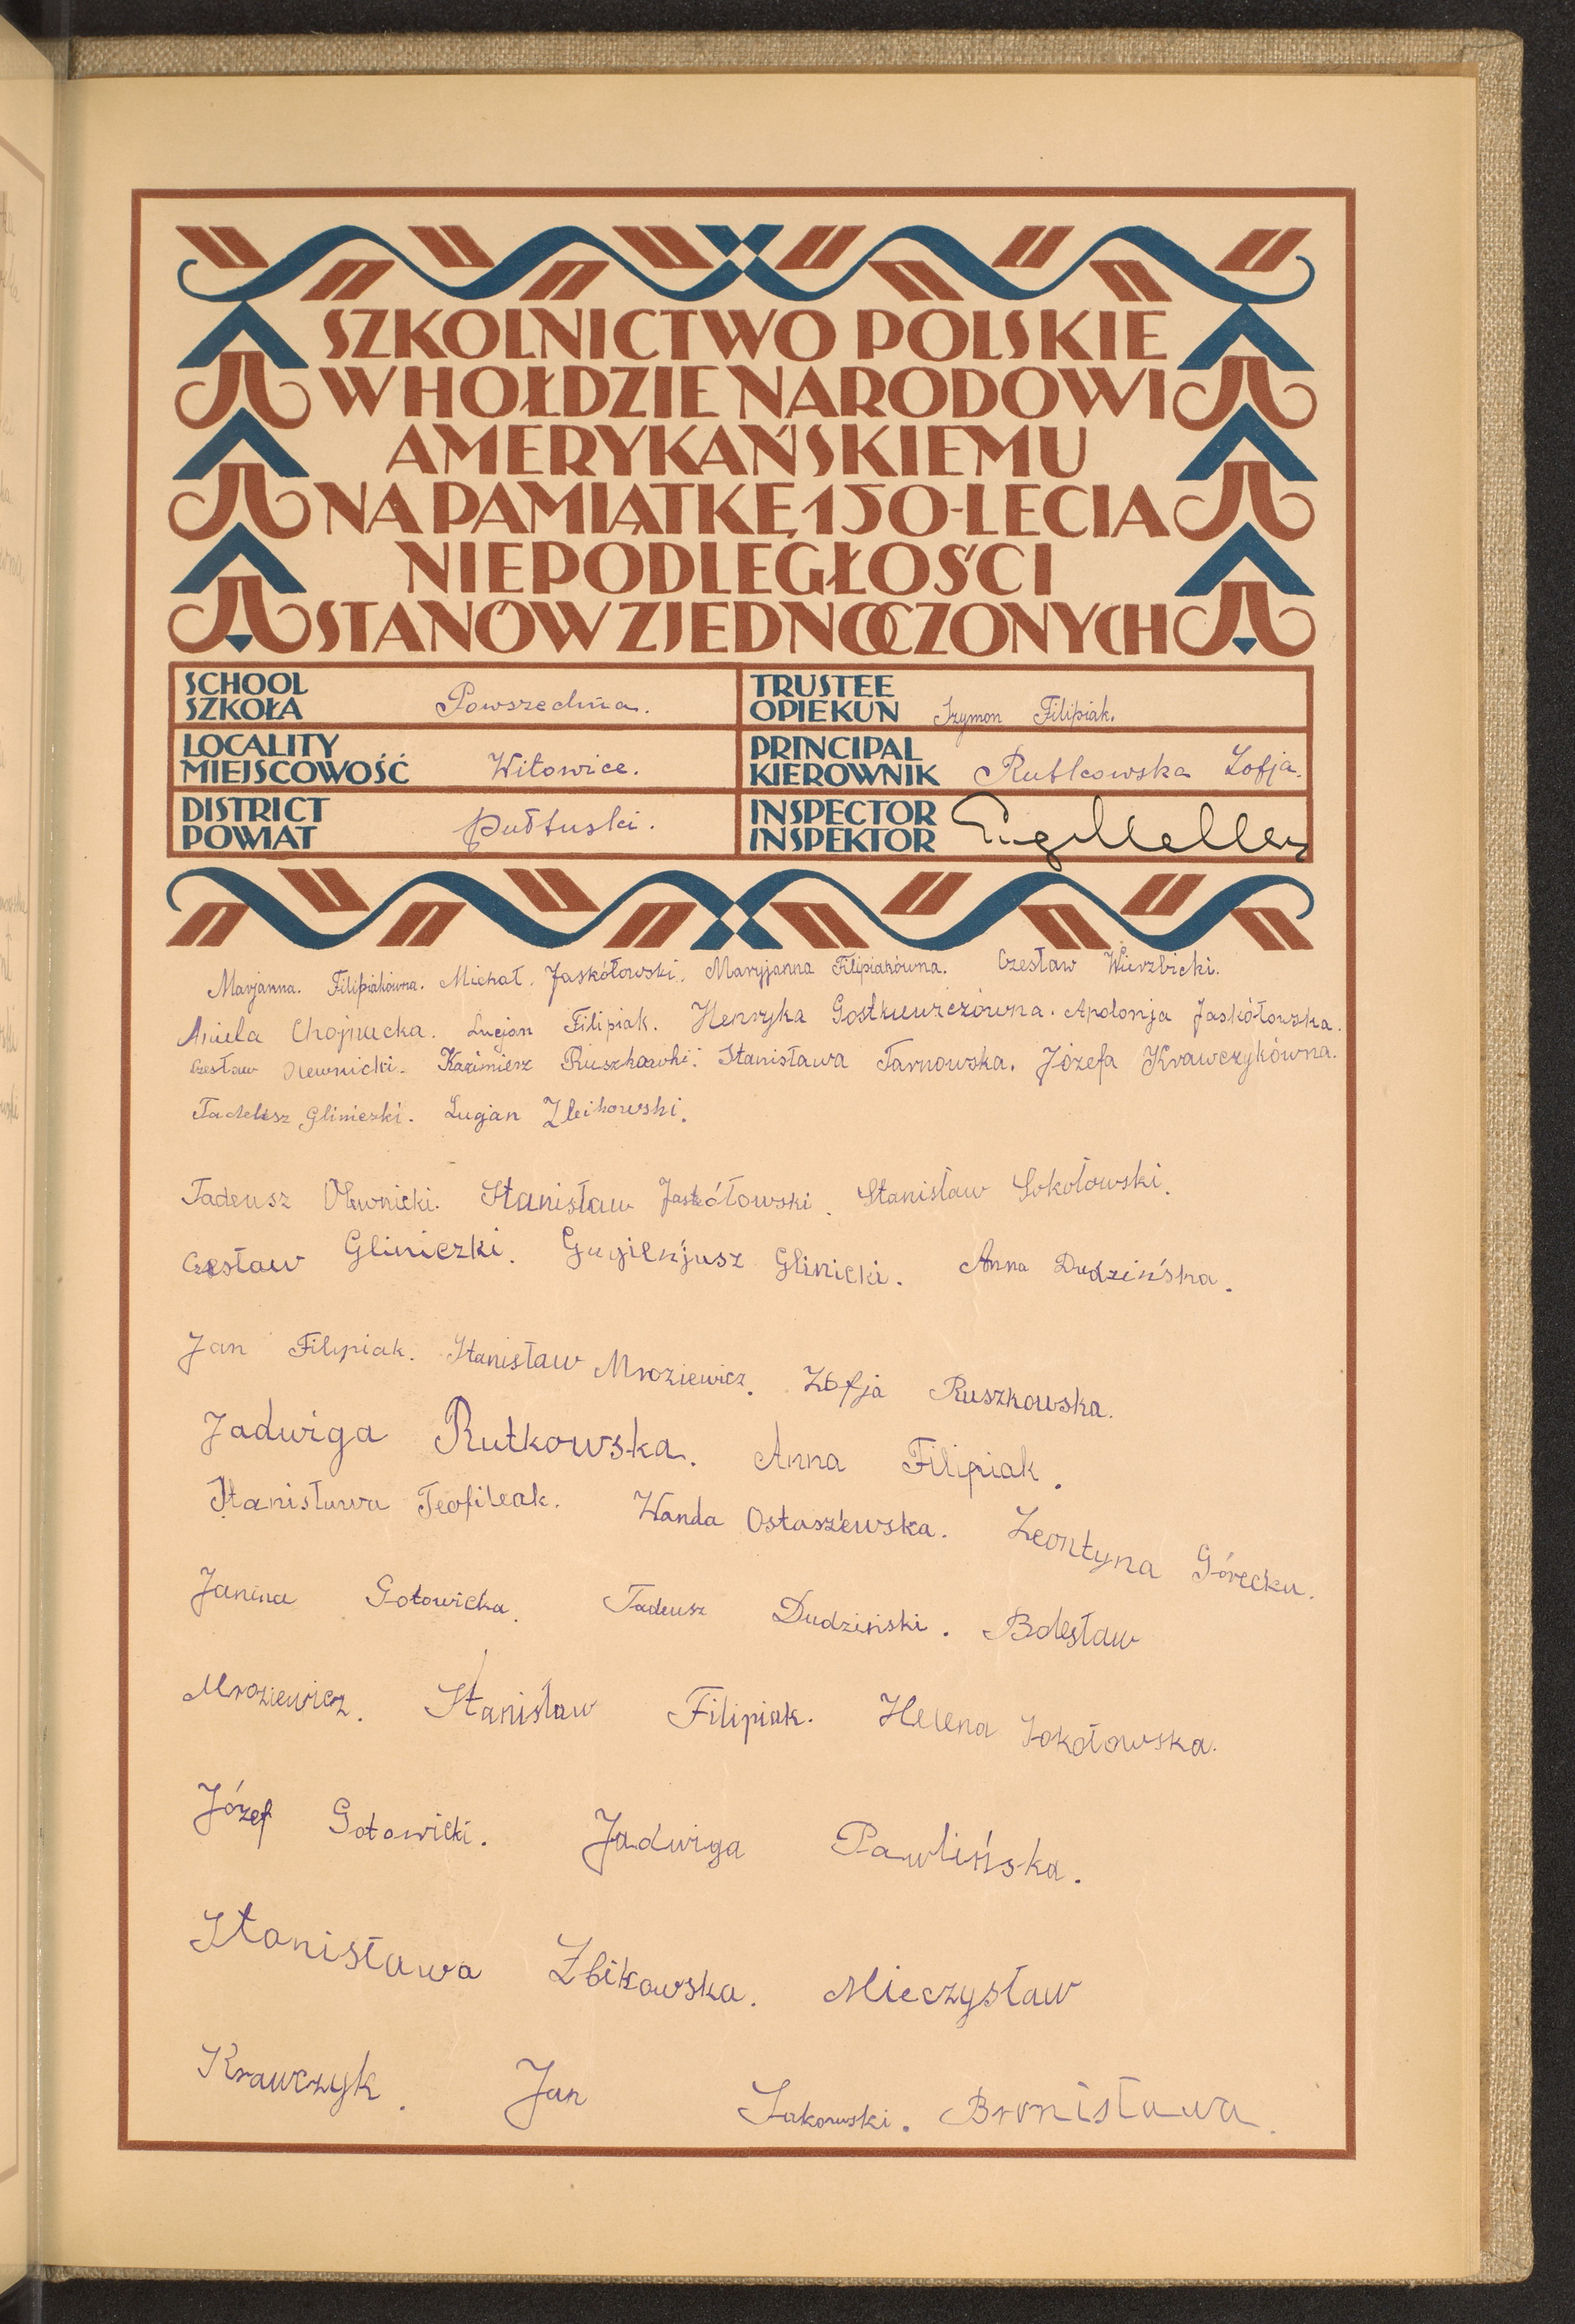 SZKOLNICTWO POLSKIE
W HOŁDZIE NARODOWI
AMERYKAŃSKIEMU
NA PAMIĄTKĘ 150-LECIA
NIEPODLEGŁOŚCI
STANÓW ZJEDNOCZONYCH
SCHOOL
SZKOŁA Powszechna.
TRUSTEE
OPIEKUN Szymon Filipiak.
LOCALITY
MIEJSCOWOŚĆ Witowice.
PRINCIPAL
KIEROWNIK Rutkowska Zofja.
DISTRICT
POWIAT Pułtuski.
INSPECTOR
INSPEKTOR
Marjanna. Filipiakówna. Michał. Jaskółowski. Maryjanna Filipiakówna. Czesław Wierzbicki.
Aniela Chojnacka. Lucjan Filipiak. Henryka Gostkiewiczówna. Apolonja Jaskółowska.
Czesław Olewnicki. Kazimierz Ruszkowski. Stanisława Tarnowska. Józefa Krawczykówna.
Tadeusz Gliniezki. Lucjan Zbikowski.
Tadeusz Olewnicki. Stanisław Jaskółowski. Stanisław Sokołowski.
Czesław Gliniczki. Gugienjusz Glinicki. Anna Dudzińska.
Jan Filipiak. Stanisław Mroziewicz. Zofja Ruszkowska.
Jadwiga Rutkowska. Anna Filipiak.
Stanisława Teofileak. Wanda Ostaszewska. Leontyna Górecka.
Janina Gotowicka. Tadeusz Dudziński. Bolesław
Mroziewicz. Stanisław Filipiak. Helena Sokołowska.
Józef Gotowicki. Jadwiga Pawlińska.
Stanisława Zbikowska. Mieczysław
Krawczyk. Jan Żakowski. Bronisława